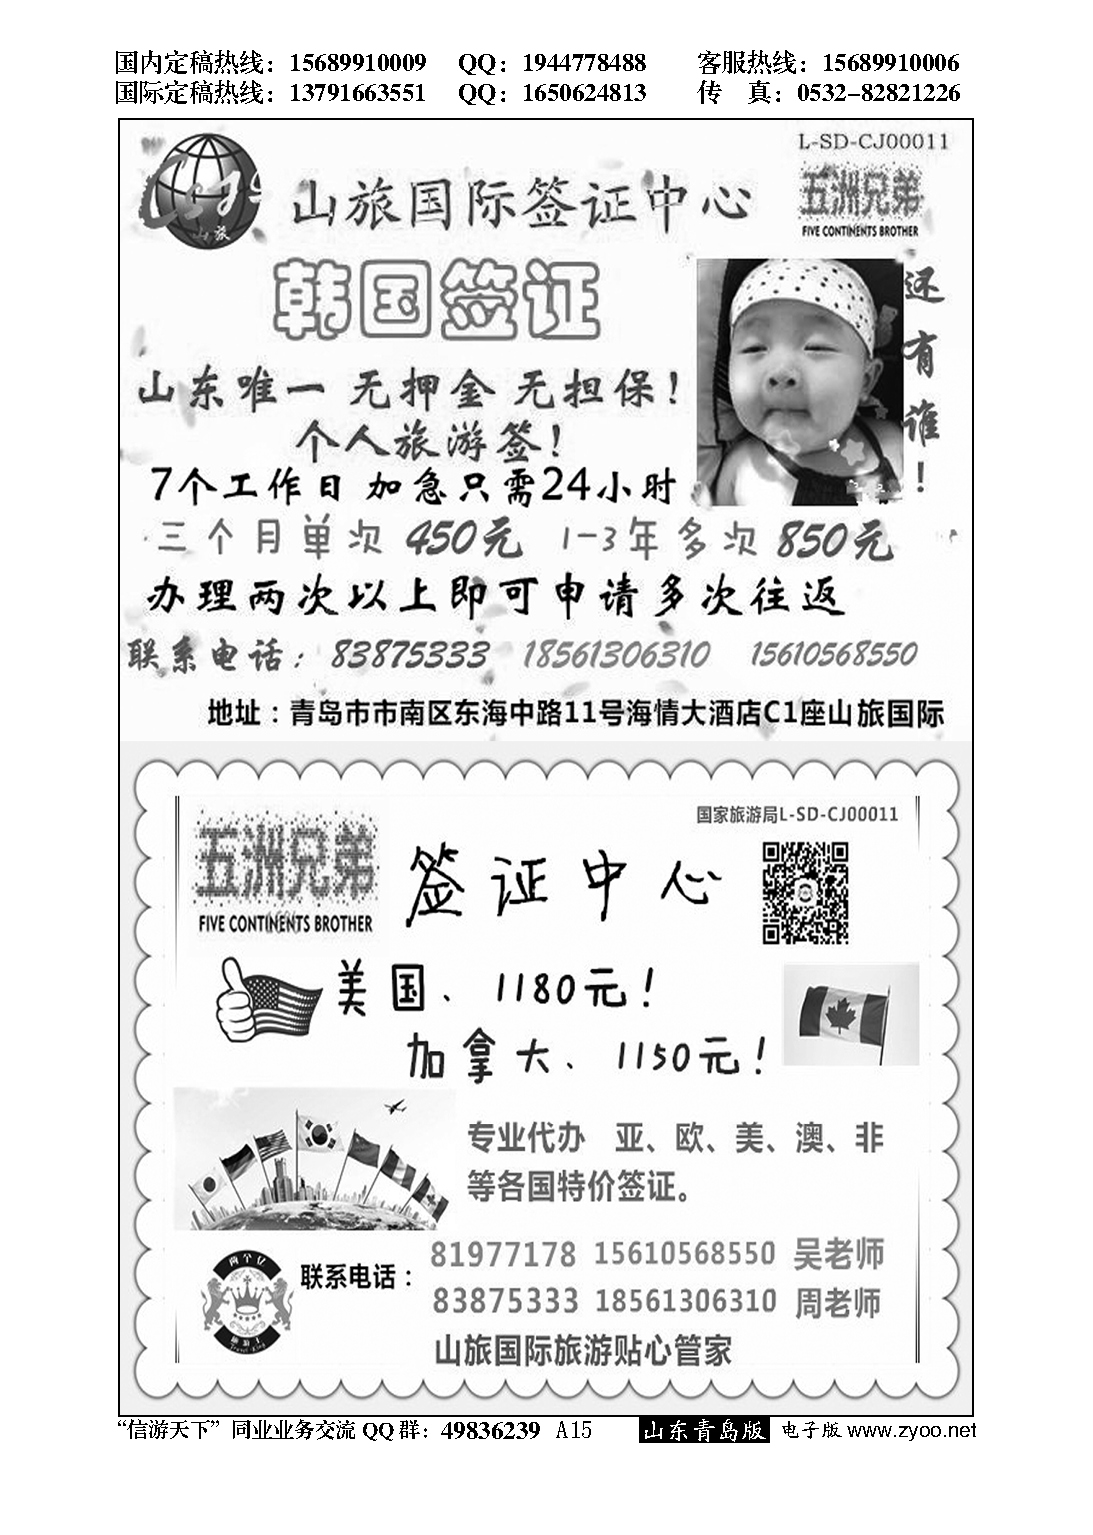 国内定稿热线：15689910009 QQ：1944778488 客服热线：15689910006
国际定稿热线：13791663551 QQ：1650624813 传 真：0532-82821226
L-SD-CJ00011
山旅
山旅国际签证中心
五洲兄弟
FIVE CONTINENTS BROTHER
韩国签证
还有谁！
山东唯一 无押金 无担保！
个人旅游签！
7个工作日 加急只需24小时
三个月单次 450元 1-3年多次 850元
办理两次以上即可申请多次往返
联系电话： 83875333 18561306310 15610568550
地址：青岛市市南区东海中路11号海情大酒店C1座山旅国际
国家旅游局L-SD-CJ00011
五洲兄弟
FIVE CONTINENTS BROTHER
签证中心
美国、1180元！
加拿大、1150元！
专业代办 亚、欧、美、澳、非
等各国特价签证。
联系电话：
81977178 15610568550 吴老师
83875333 18561306310 周老师
山旅国际旅游贴心管家
“信游天下”同业业务交流QQ群：49836239 A15 山东青岛版 电子版 www.zyoo.net